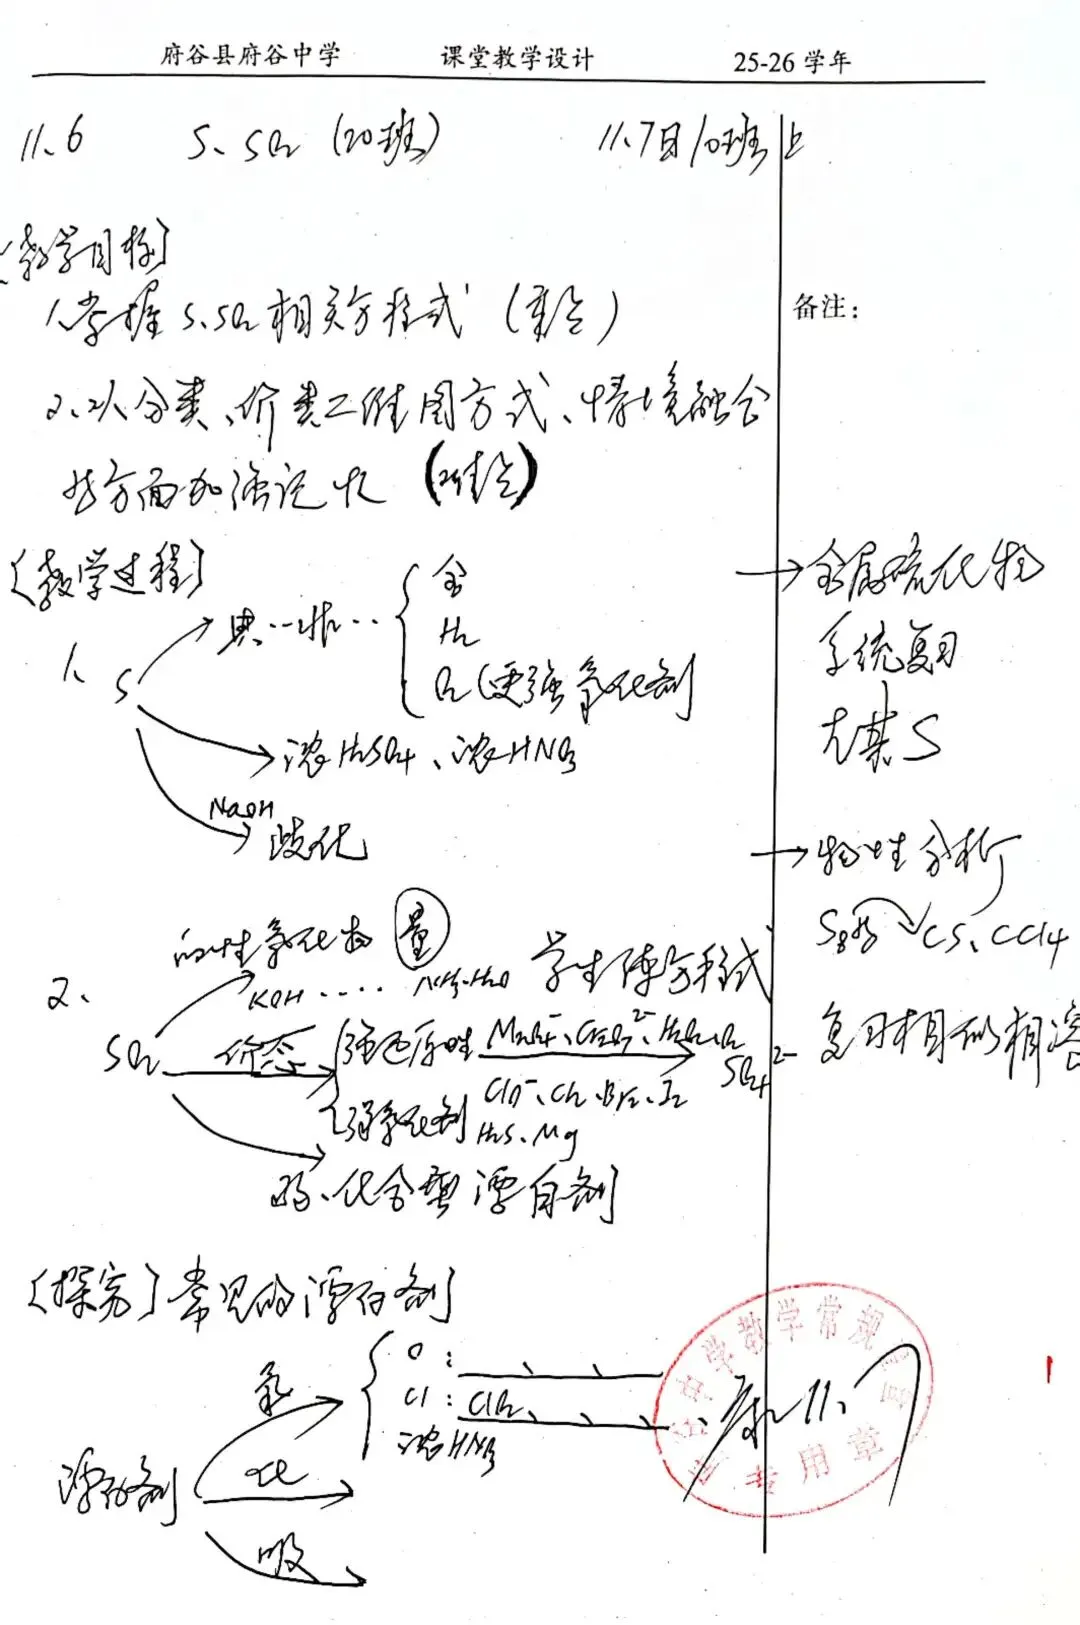 府谷县府谷中学 课堂教学设计 25-26 学年
11.6 S、SO₂ (20班) 11.7日10班上
[教学目标]
1、掌握 S、SO₂ 相关方程式 (重点)
备注：
2、以分类、价类二维图方式、情境融合
等方面加强记忆 (难点)
[教学过程]
1、S
典··非··
金
H₂
O₂ (更强氧化剂
浓H₂SO₄、浓HNO₃
NaOH
歧化
→金属硫化物
系统复习
尤其S
→物性分析
S₈ CS₂ CCl₄
复习相似相溶
2、SO₂
酸性氧化物 量
KOH ···· NH₃·H₂O 学生练方程式
价态
强还原性 MnO₄⁻、Cr₂O₇²⁻、H₂O₂、O₂ SO₄²⁻
ClO⁻、Cl₂、Br₂、I₂
弱氧化剂 H₂S、Mg
弱、化合型漂白剂
[探究] 常见的漂白剂
漂白剂
氧
O：
Cl：ClO₂
浓HNO₃
化
吸
中学教学常规
专用章
康 11.7